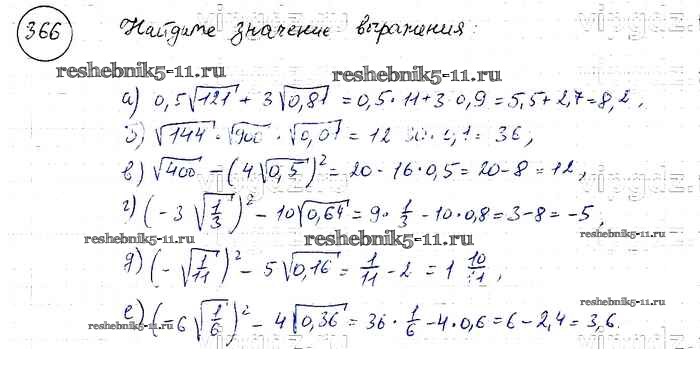 366 Найдите значение выражения:
reshebnik5-11.ru reshebnik5-11.ru
а) 0,5√121 + 3√0,81 = 0,5·11+3·0,9=5,5+2,7=8,2,
б) √144 · √900 · √0,01 = 12·30·0,1=36;
в) √400 − (4√0,5)² = 20 − 16·0,5 = 20−8 = 12,
г) (−3√(1/3))² − 10√0,64 = 9·1/3 − 10·0,8=3−8=−5;
reshebnik5-11.ru reshebnik5-11.ru reshebnik5-11.ru
д) (−√(1/11))² − 5√0,16 = 1/11 − 2 = 1 10/11,
е) (−6√(1/6))² − 4√0,36 = 36·1/6−4·0,6=6−2,4=3,6.
reshebnik5-11.ru reshebnik5-11.ru reshebnik5-11.ru